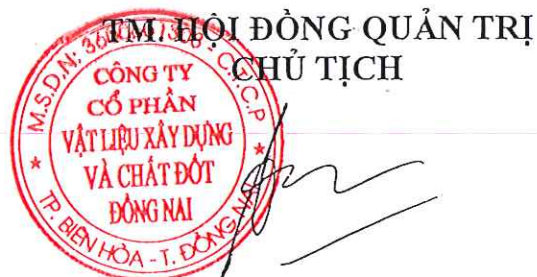 TM. HỘI ĐỒNG QUẢN TRỊ
CHỦ TỊCH
M.S.D.N: - C.T.C.P
CÔNG TY
CỔ PHẦN
VẬT LIỆU XÂY DỰNG
VÀ CHẤT ĐỐT
ĐỒNG NAI
TP. BIÊN HÒA - T. ĐỒNG NAI